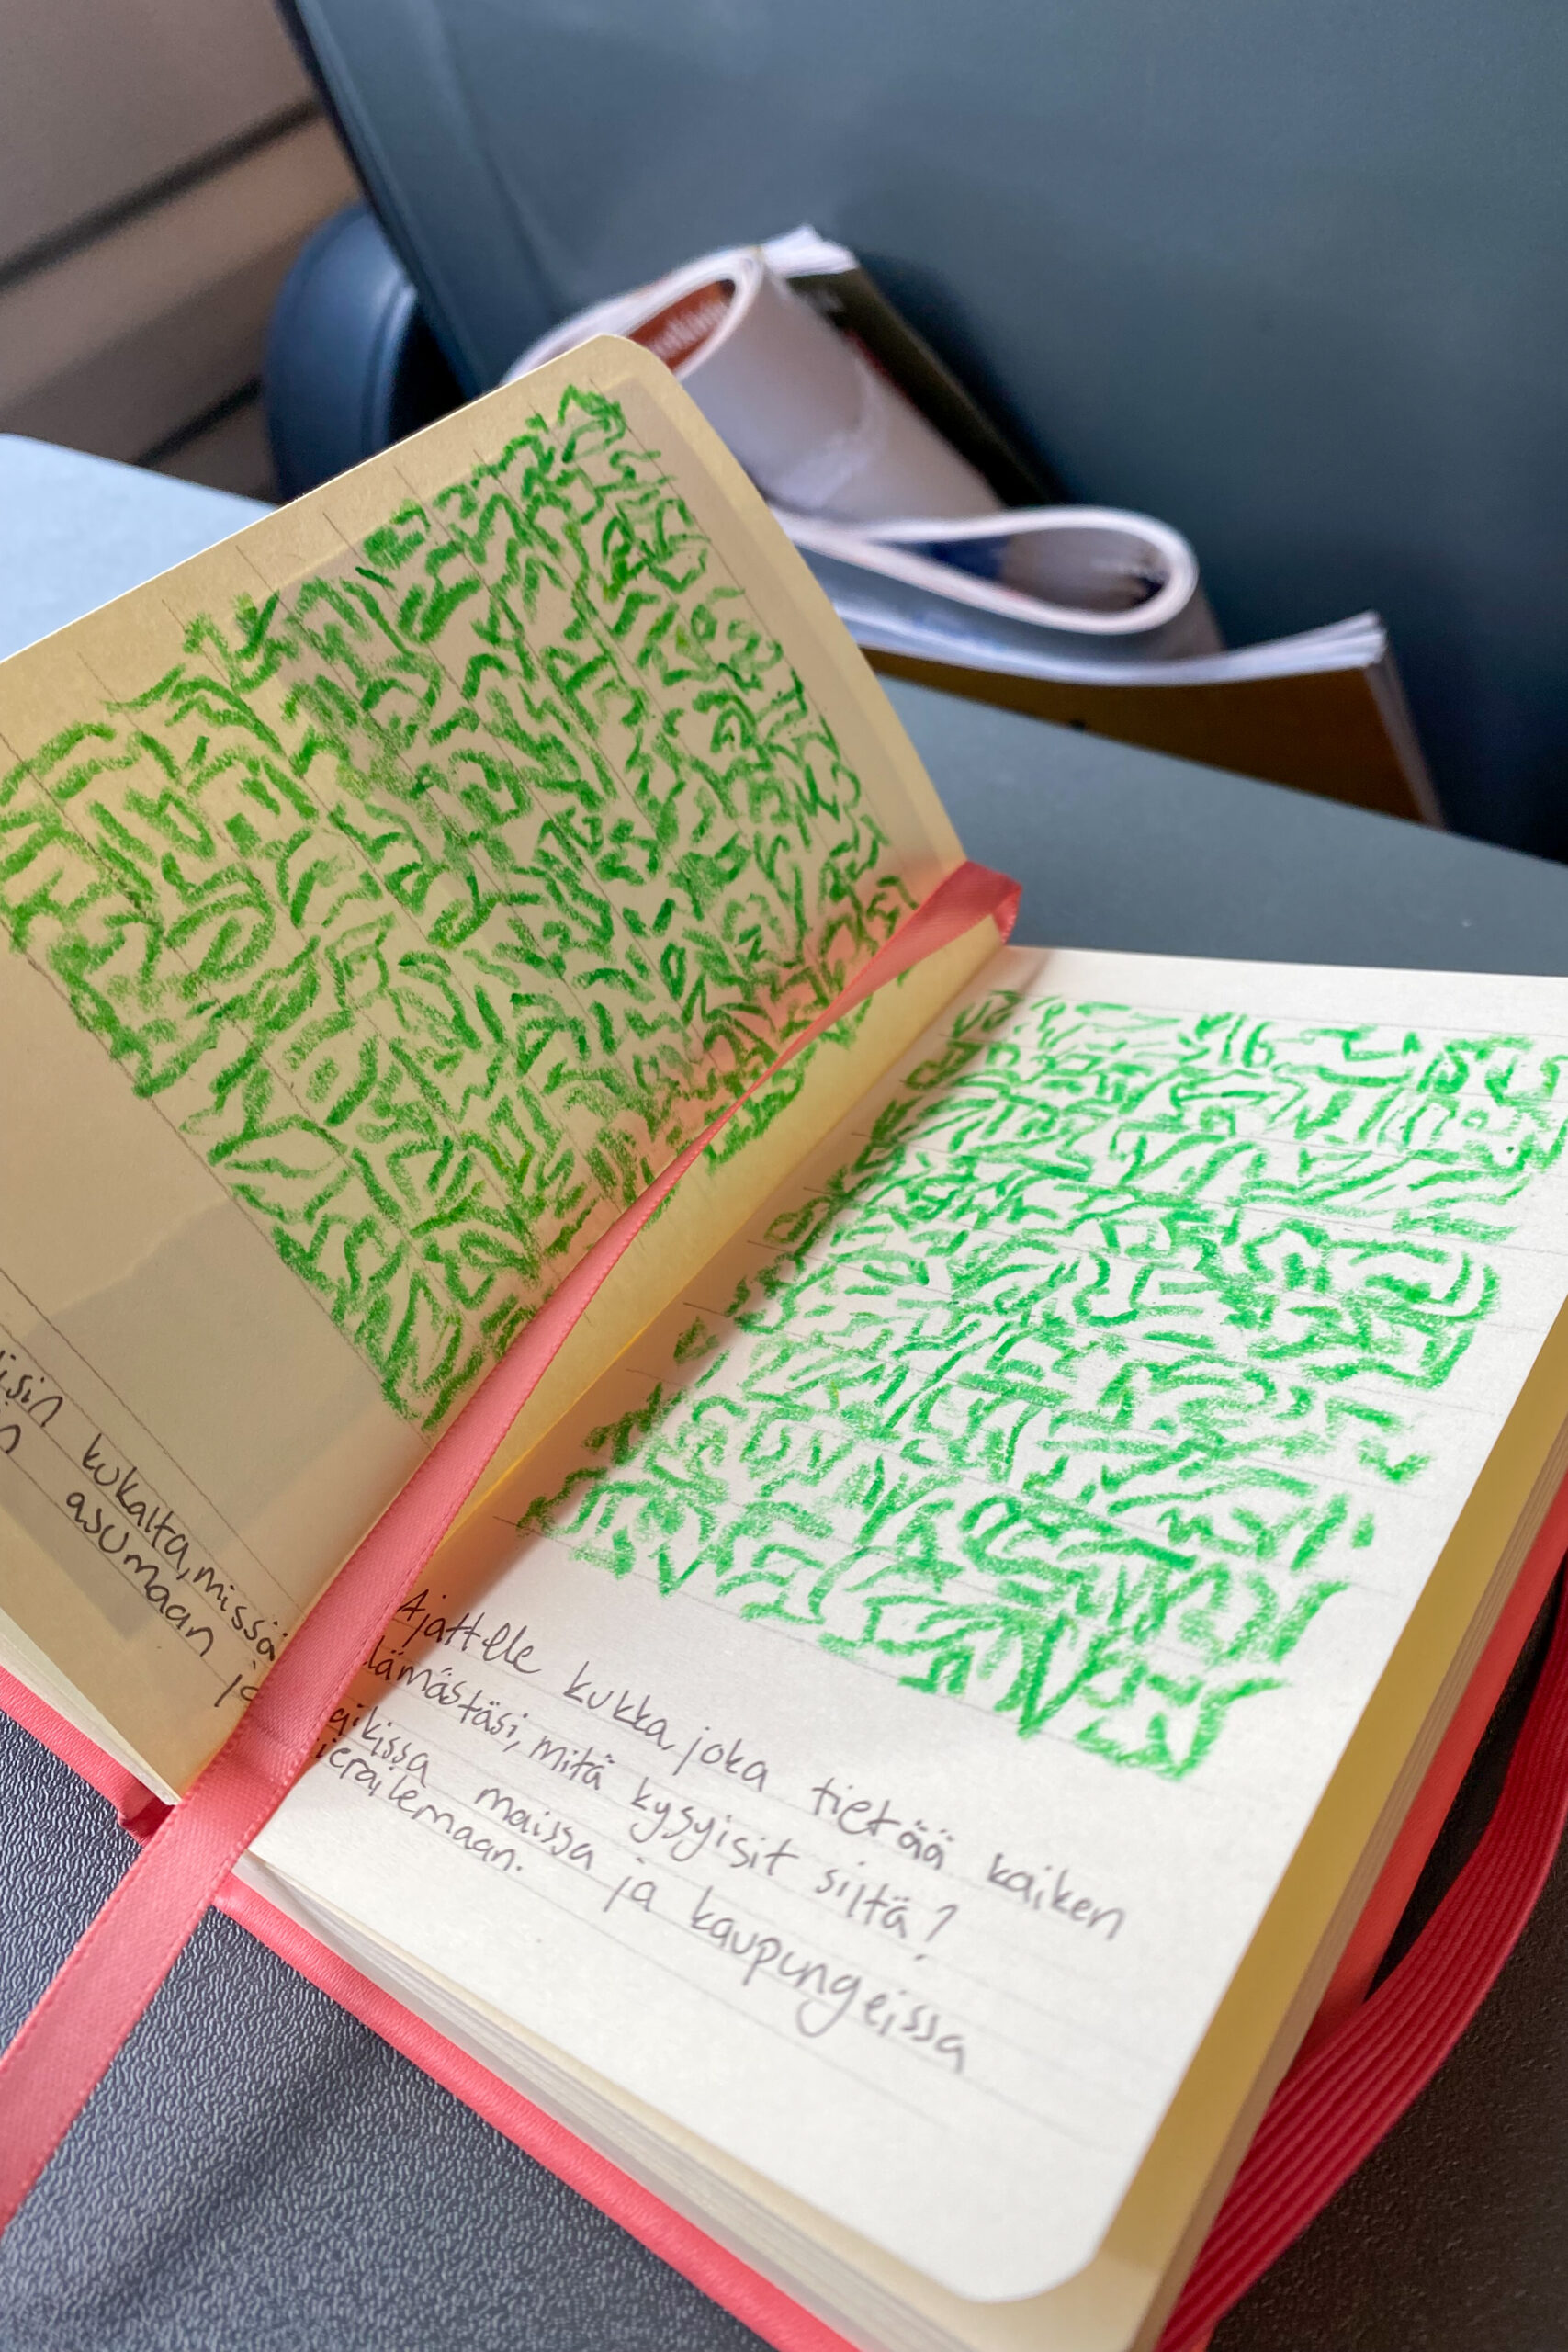 isin kukalta, missä
n asumaan ja
Ajattele kukka, joka tietää kaiken
lämästäsi, mitä kysyisit siltä?
aikissa maissa ja kaupungeissa
ierailemaan.